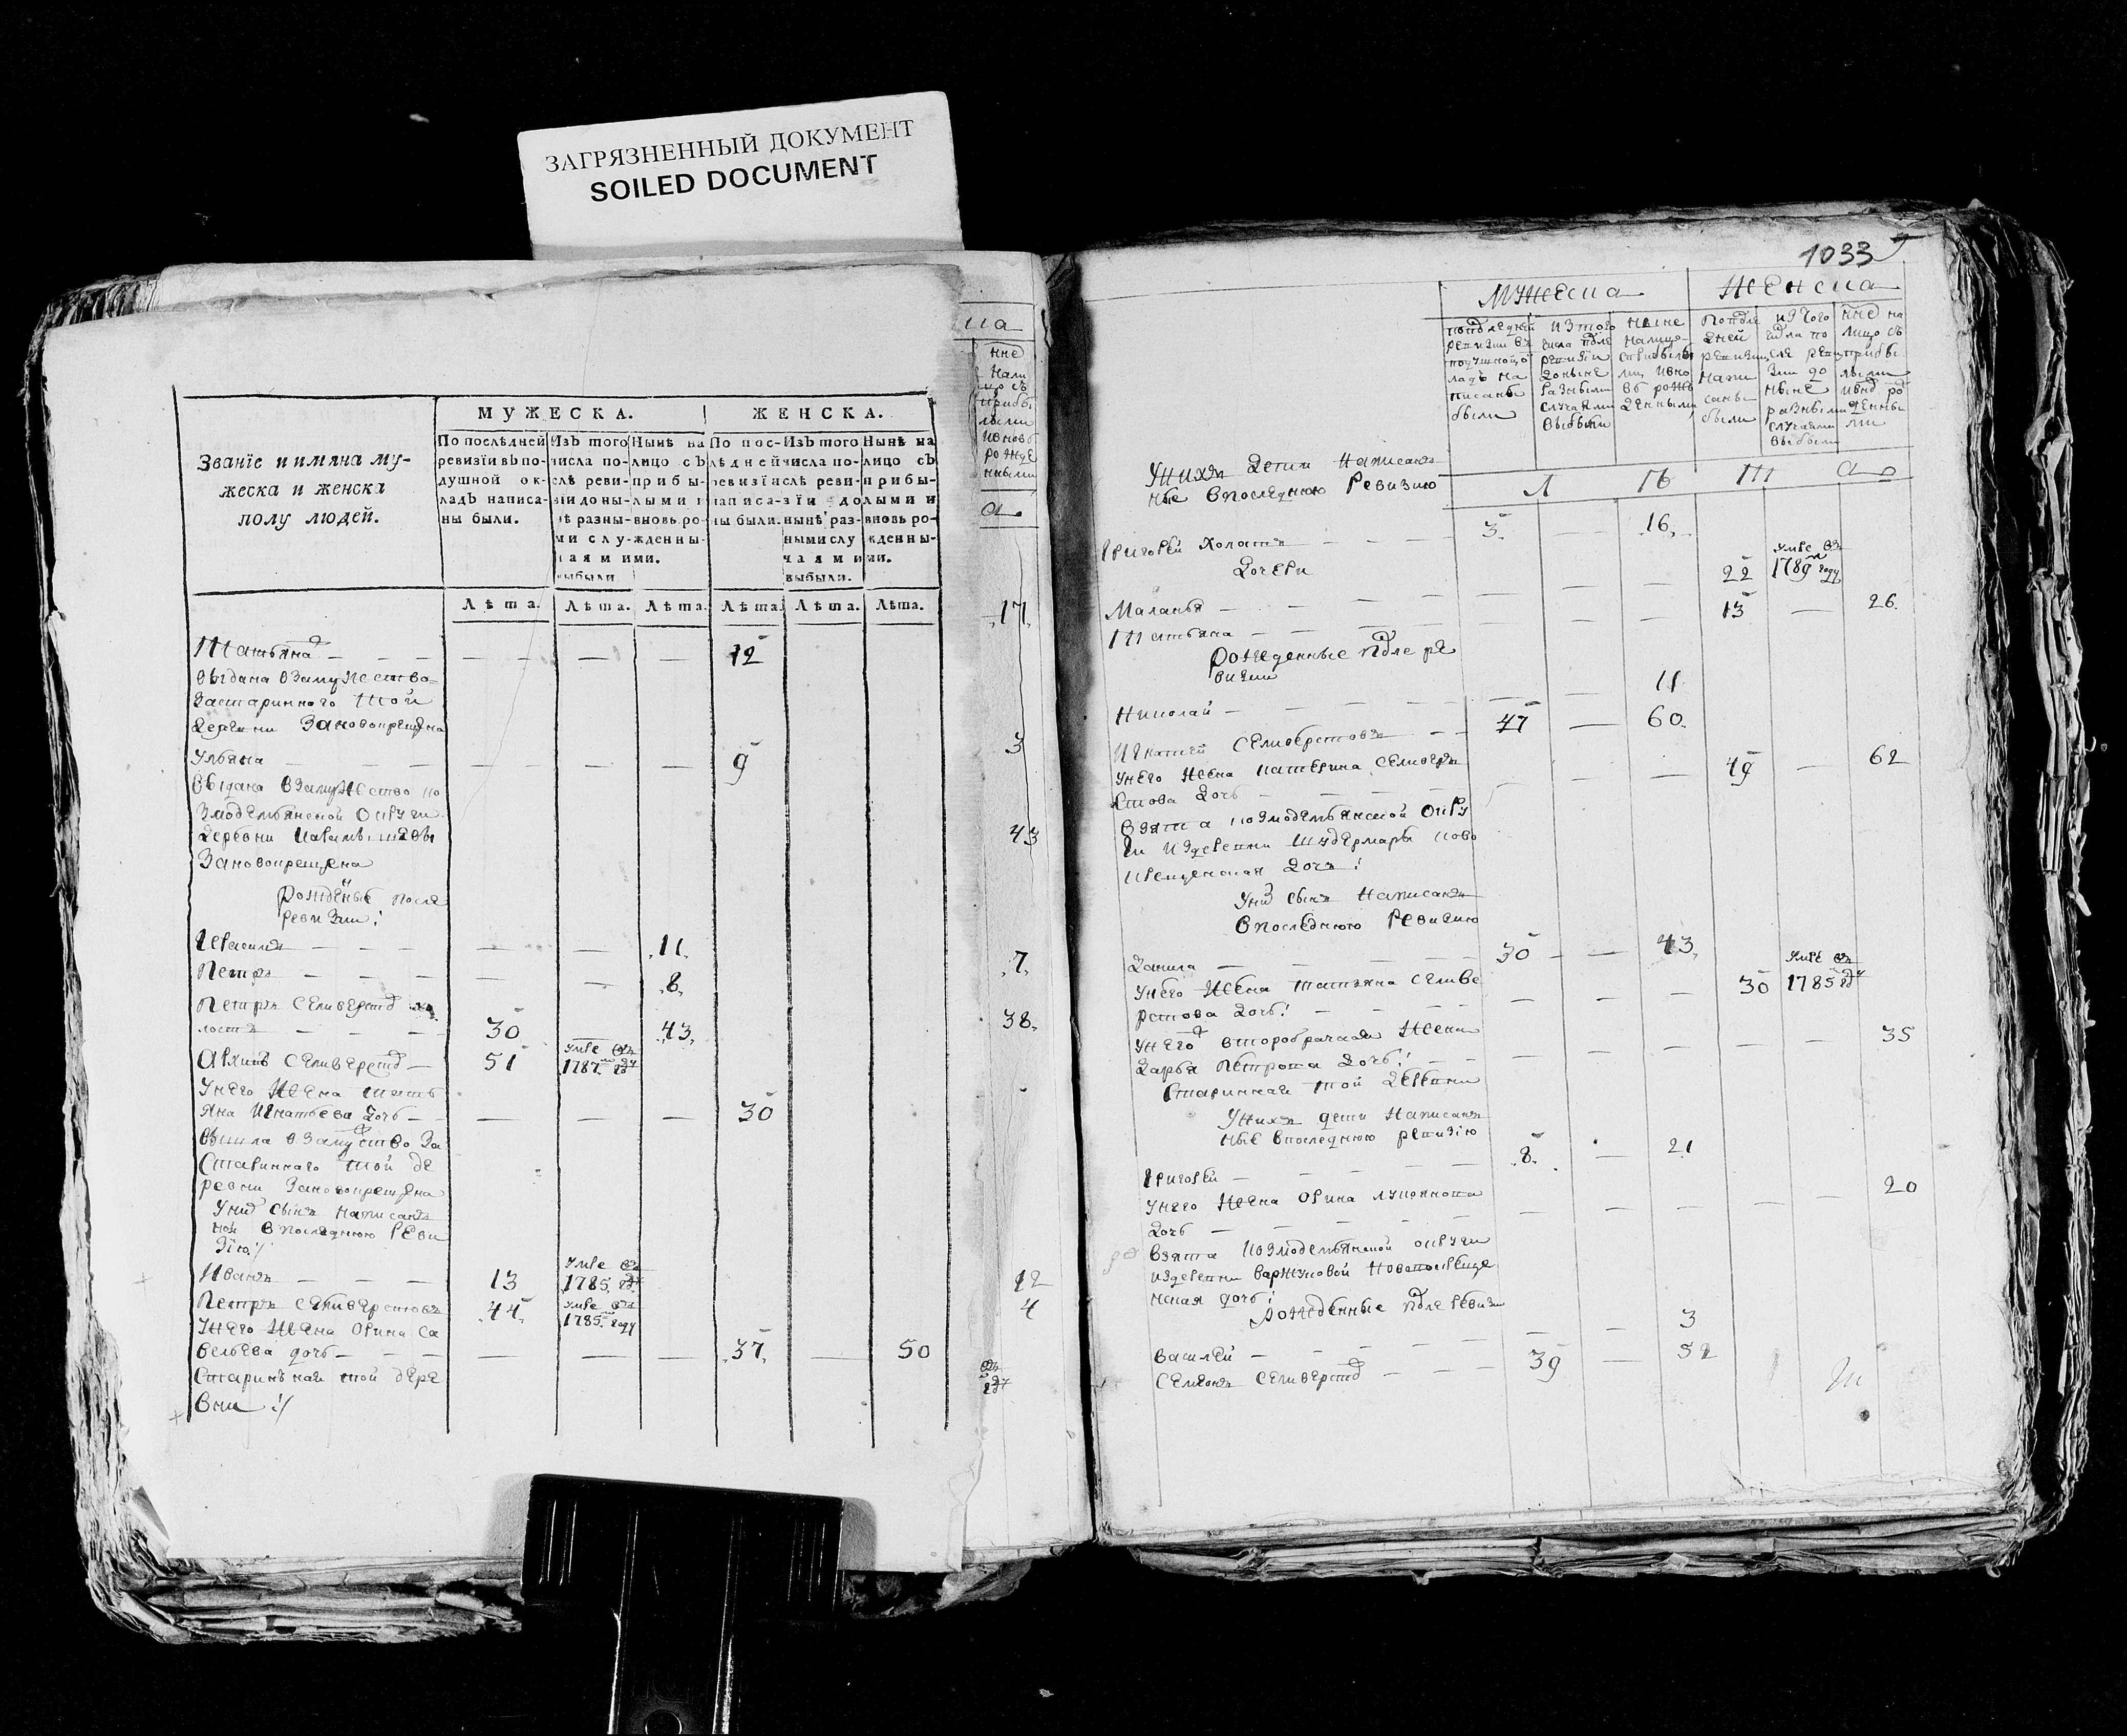 ЗАГРЯЗНЕННЫЙ ДОКУМЕНТ
SOILED DOCUMENT
Званїе и имяна му-
жеска и женска
полу людей.
МУЖЕСКА.
ЖЕНСКА.
По послѣдней
ревизїи въ по-
душной ок-
ладъ написа-
ны были.
Изъ того
числа по-
слѣ реви-
зіи доны-
ѣ разны-
ми слу-
чаями
выбыли
Нынѣ на
лицо съ
прибы-
лыми и
вновь ро-
жденны-
ми.
По пос-
лѣдней
ревизїи
написа-
ны были.
Изъ того
числа по-
слѣ реви-
зїи до
нынѣ раз-
ными слу
чаями
выбыли.
Нынѣ на
лицо съ
прибы-
лыми и
вновь ро-
жденны-
ми.
Лѣта. Лѣта. Лѣта. Лѣта. Лѣта. Лѣта.
Татьяна — — — — — — 12
выдана взамужество
застаринного той
деревни Зановокрещена
Ульяна — — — — — — 9
Выдана взамужество ко
змодемьянской округи
деревни
Зановокрещена
рожденые после
ревизии
Герасимъ — — — — — 11
Петръ — — — — — 8
Петръ Селиверстов
лостъ — — — 30 — 43
Архипъ Селиверстов — 51 умре въ 1787 году
Унего жена тать
яна Игнатьева дочь — — — — 30
вышла взамуство за
Стариннаго той де
ревни Зановокрещена
Уних сынъ написан
ной впоследнюю Реви
зїю
Иванъ — — — 13 умре въ 1785 году
Петръ Селиверстовъ 44 умре въ 1785 году
Унего жена Орина Са
вельева дочь — — — — 37 — 50
Старинъная той дере
вни
ка
ныне
нали
цо съ
прибы
лыми
ивновь
рожде
нными
а
17
3
43
7
38
12
4
1033
Мужеска
Женска
попоследней
ревизии въ
подушной о
ладъ на
писаны
были
изтого
числа после
ревизїи
доныне
разными
случаями
выбыли
ныне
налицо
сприбылы
ми ивно
вь рож
денными
Попосле
дней
ревизии
напи
саны
были
изтого
числа по
сле реви
зии до
ныне
разными
случаями
выбыли
ныне на
лицо съ
прибы
лыми
ивнов ро
жденны
ми
Унихъ дети написан
ные впоследнюю Ревизию
Л ѣ т а
Григорей холостъ — — — 3 — — 16
Дочери
Маланья — — — — — — 22 умре въ 1789 году
Татьяна — — — — — — 13 — 26
рожденные после ре
визии
Николай — — — — — — 11
Игнатей Селиверстовъ — — 47 — 60
Унего жена катерина Селивер
стова дочь — — — — — — 49 — 62
взята козмодемьянской окру
ги издеревни Шудермары ново
крещенская дочь
Уних сынъ написанъ
впоследнюю Ревизию
Данила — — — 30 — — 43
Унего жена татьяна Селиве
рстова дочь — — — — — 30 умре въ 1785 году
Унего второбрачная жена
Дарья Петрова дочь — — — — — — — 35
Старинная той деревни
Унихъ дети написан
ные впоследнюю ревизїю
Григорей — — — 8 — 21
Унего жена Орина
дочь — — — — — — — — 20
Взята козмодемьянской округи
издеревни
нская дочь
Рожденные после Ревизии
Василей — — — — — 3
Семенъ Селиверстов — — — 39 — 52